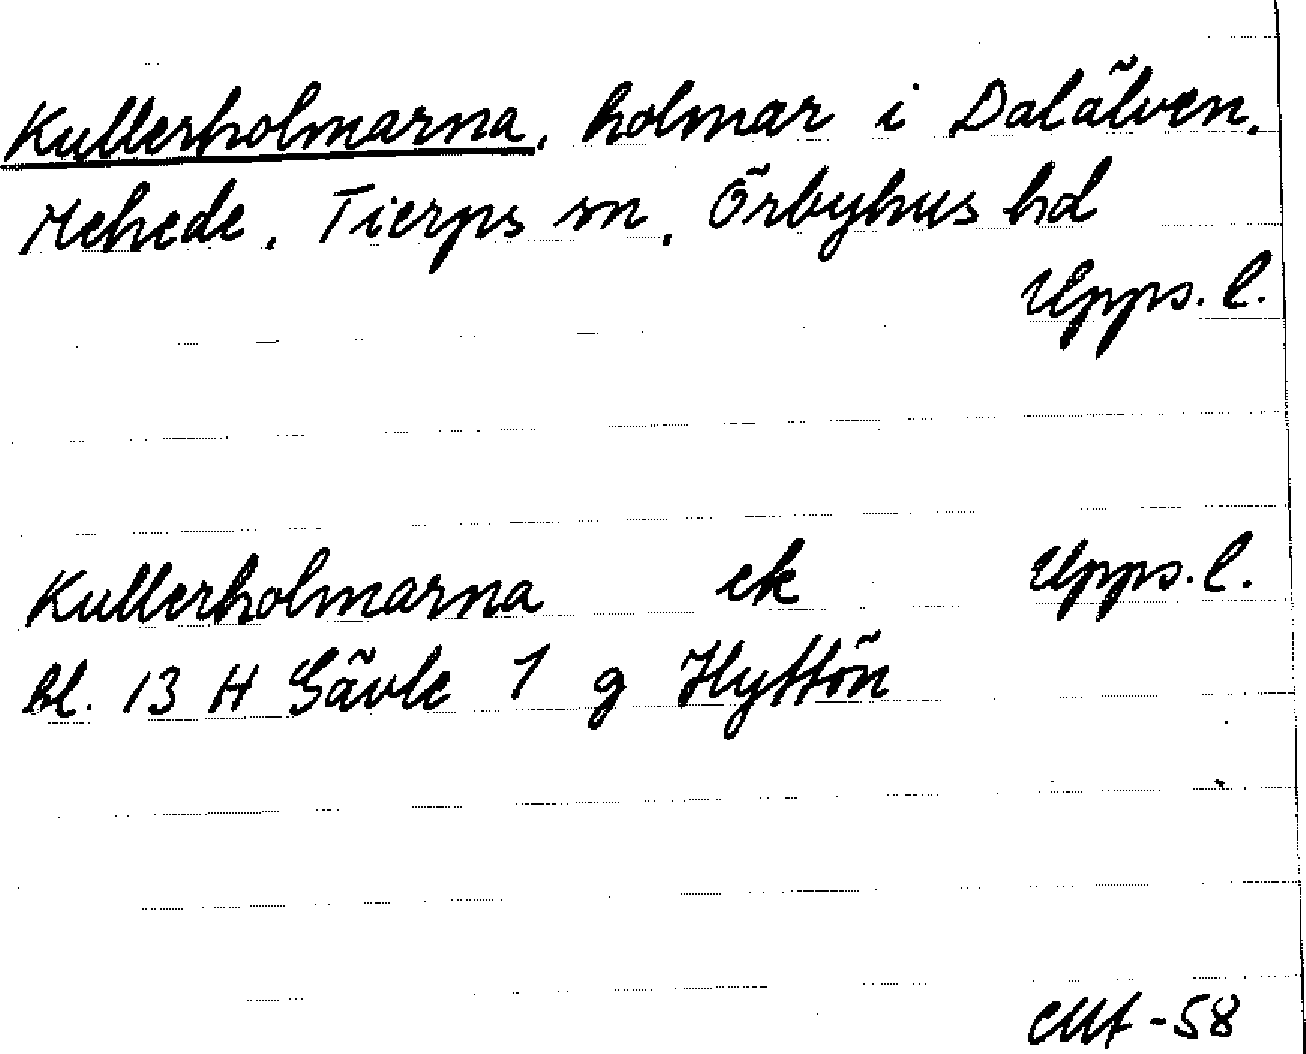 Kullerholmarna, holmar i Dalälven.
Mehede, Tierps sn, Örbyhus hd
Upps. l.
Kullerholmarna ek Upps. l.
bl. 13 H Gävle 1 g Hyttön
-58